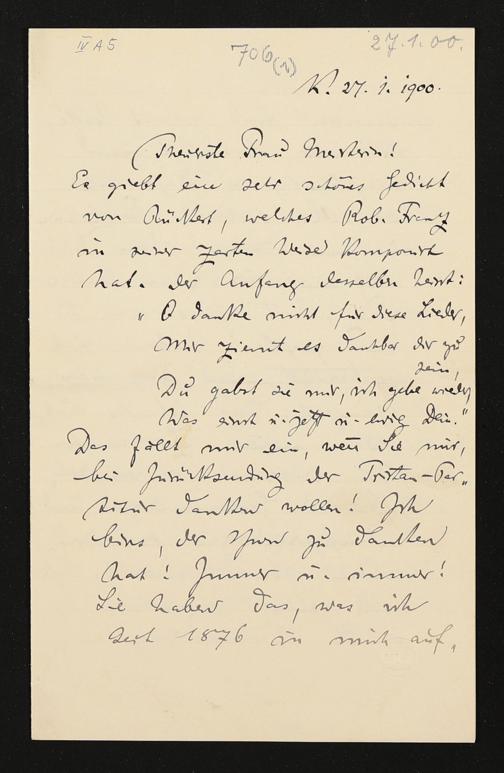 IV A 5
706(2)
27.1.00.
K. 27. 1. 1900.
Theuerste Frau Meisterin!
Es giebt ein sehr schönes Gedicht
von Rückert, welches Rob. Franz
in seiner zarten Weise komponirt
hat. Der Anfang desselben heisst:
„O danke nicht für diese Lieder,
Mir ziemt es dankbar dir zu
sein,
Du gabst sie mir, ich gebe wieder,
Was einst u. jetzt u. ewig Dein."
Das fällt mir ein, wenn Sie mir,
bei Zurücksendung der Tristan-Par-
titur danken wollen! Ich
bins, der Ihnen zu danken
hat! Immer u. immer!
Sie haben das, was ich
seit 1876 in mich auf-